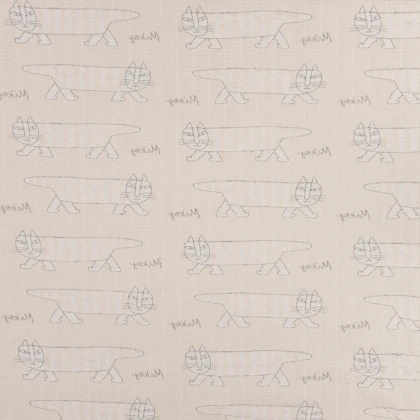 Mikey Mikey
Mikey Mikey Mikey
Mikey Mikey
Mikey Mikey Mikey
Mikey Mikey
Mikey Mikey Mikey
Mikey Mikey